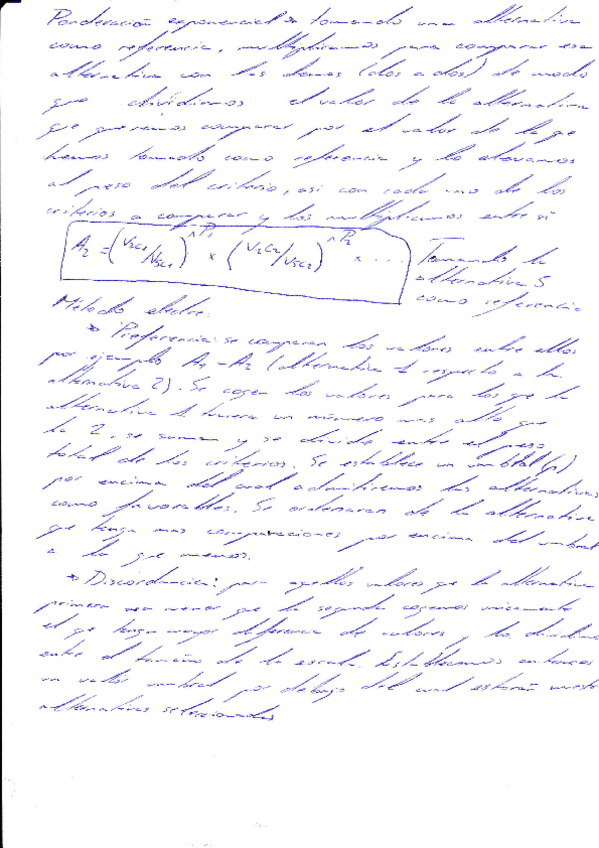 Ponderación exponencial » tomando una alternativa
como referencia, multiplicamos para comparar esa
alternativa con las demas (dos a dos) de modo
que dividimos el valor de la alternativa
que queremos comparar por el valor de la que
hemos tomado como referencia y lo elevamos
al peso del criterio, asi con cada uno de los
criterios a comparar y los multiplicamos entre si
A2 = (V2C1/V5C1)^P1 × (V2C2/V5C2)^P2 × ...
Tomando la
alternativa 5
como referencia
Método electre:
Preferencia: se comparan los valores entre ellos
por ejemplo A1 - A2 (alternativa 1 respecto a la
alternativa 2). Se cogen los valores para los que la
alternativa 1 tuviera un número mas alto que
la 2, se suman y se divide entre el peso
total de los criterios. Se establece un umbral (p)
por encima del cual admitiremos las alternativas
como favorables. Se ordenaran de la alternativa
que tenga mas comparaciones por encima del umbral
a la que menos.
Discordancia: para aquellos valores que la alternativa
primera sea menor que la segunda cogemos unicamente
el que tenga mayor diferencia de valores y lo dividimos
entre el tamaño de la escala. Establecemos entonces
un valor umbral por debajo del cual estarán
alternativas seleccionadas